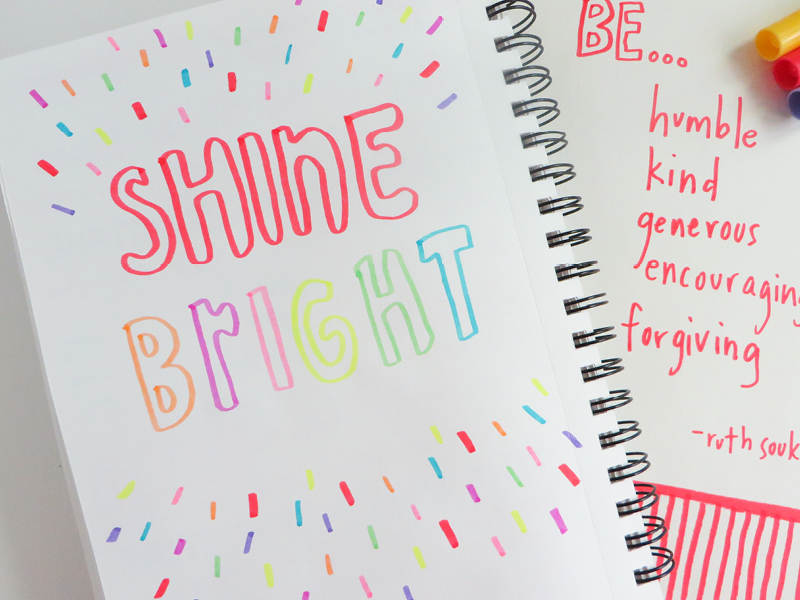 SHINE
BrIGHT
BE...
humble
kind
generous
encouraging
forgiving
-ruth souk